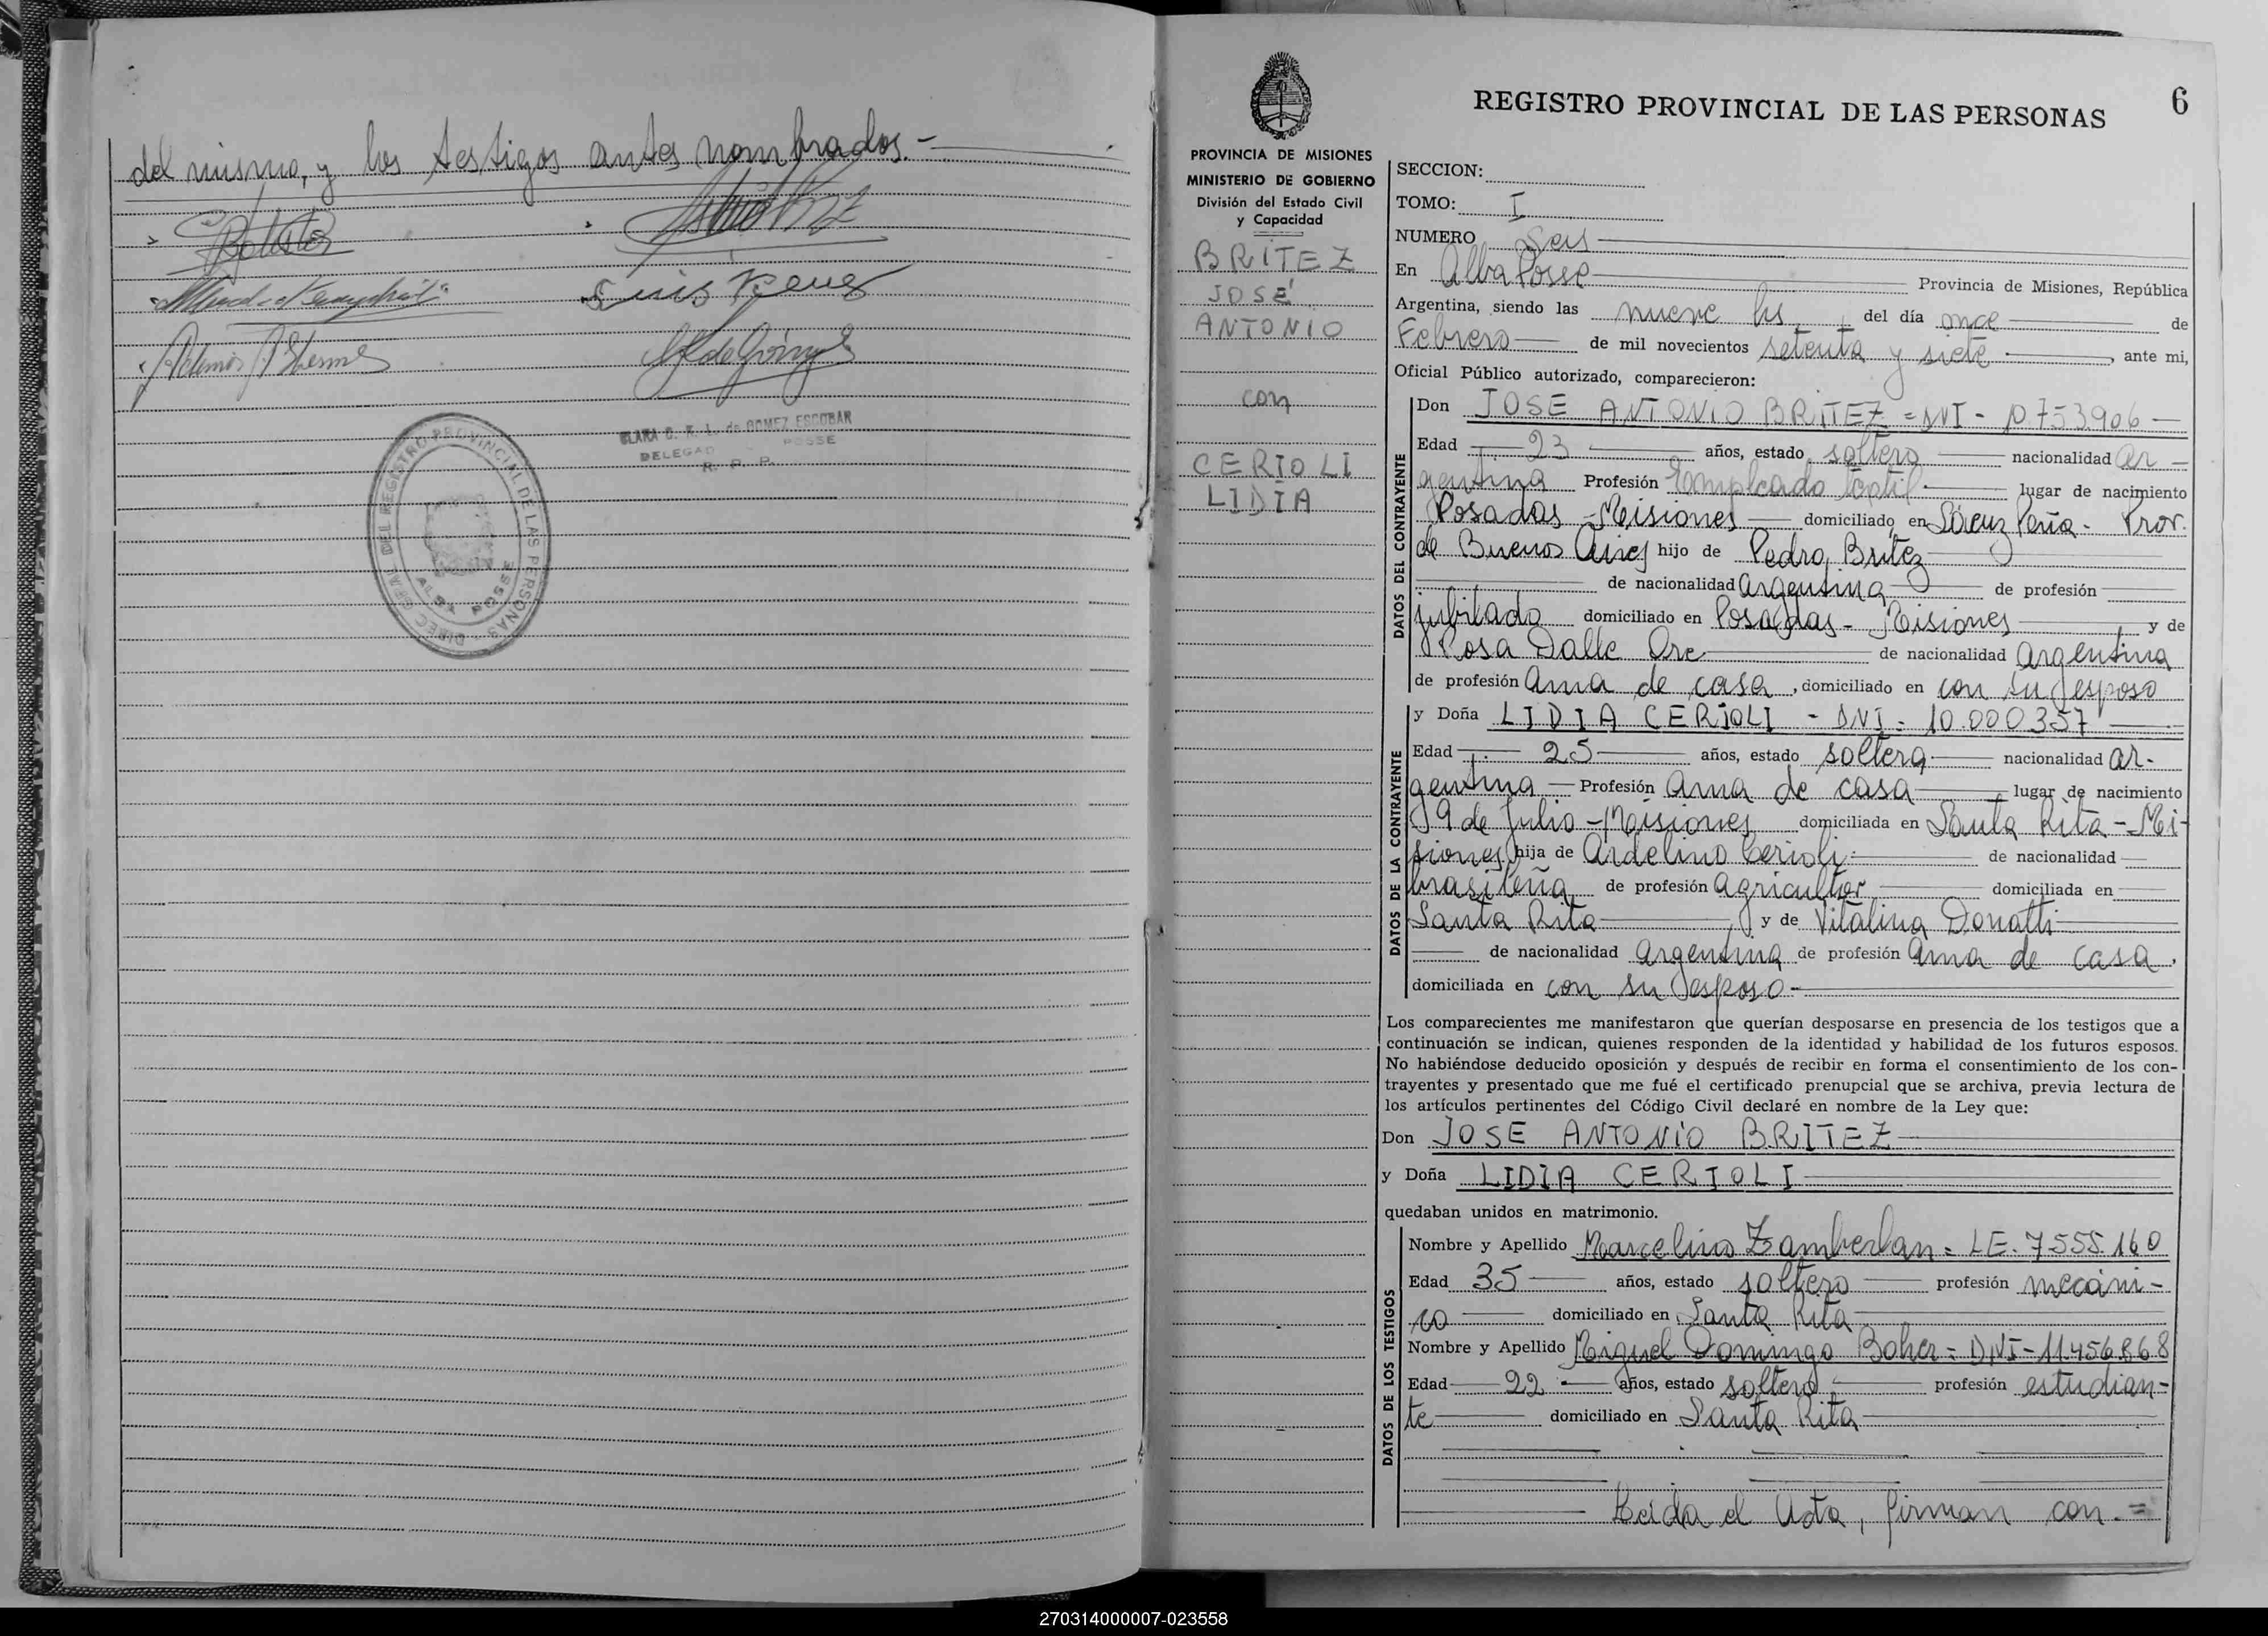 del mismo, y los testigos antes nombrados.-
Luis
CLARA C. R. L. de GOMEZ ESCOBAR
DELEGAD POSSE
R. P. P.
DIREC. GRAL. DEL REGISTRO PROVINCIAL DE LAS PERSONAS
ALBA POSSE
6
REGISTRO PROVINCIAL DE LAS PERSONAS
PROVINCIA DE MISIONES
MINISTERIO DE GOBIERNO
División del Estado Civil
y Capacidad
BRITEZ
JOSÉ
ANTONIO
con
CERIOLI
LIDIA
SECCION:
TOMO: I
NUMERO Seis
En Alba Posse Provincia de Misiones, República
Argentina, siendo las nueve hs del día once de
Febrero de mil novecientos setenta y siete, ante mi,
Oficial Público autorizado, comparecieron:
DATOS DEL CONTRAYENTE
Don JOSE ANTONIO BRITEZ = DNI - 10.753.906
Edad 23 años, estado soltero nacionalidad ar-
gentina Profesión Empleado textil lugar de nacimiento
Posadas - Misiones domiciliado en Sáenz Peña - Prov.
de Buenos Aires hijo de Pedro Britez
de nacionalidad argentina de profesión
jubilado domiciliado en Posadas - Misiones y de
Rosa Dalle Ore de nacionalidad argentina
de profesión ama de casa, domiciliado en con su esposo
DATOS DE LA CONTRAYENTE
y Doña LIDIA CERIOLI - DNI = 10.000.357
Edad 25 años, estado soltera nacionalidad ar-
gentina Profesión ama de casa lugar de nacimiento
9 de Julio - Misiones domiciliada en Santa Rita - Mi-
siones hija de Ardelino Cerioli de nacionalidad
brasileña de profesión agricultor domiciliada en
Santa Rita y de Vitalina Donatti
de nacionalidad argentina de profesión ama de casa,
domiciliada en con su esposo-
Los comparecientes me manifestaron que querían desposarse en presencia de los testigos que a
continuación se indican, quienes responden de la identidad y habilidad de los futuros esposos.
No habiéndose deducido oposición y después de recibir en forma el consentimiento de los con-
trayentes y presentado que me fué el certificado prenupcial que se archiva, previa lectura de
los artículos pertinentes del Código Civil declaré en nombre de la Ley que:
Don JOSE ANTONIO BRITEZ
y Doña LIDIA CERIOLI
quedaban unidos en matrimonio.
DATOS DE LOS TESTIGOS
Nombre y Apellido Marcelino Zamberlan = LE. 7.555.160
Edad 35 años, estado soltero profesión mecáni-
co domiciliado en Santa Rita
Nombre y Apellido Miguel Domingo Boher = DNI - 11.456.868
Edad 22 años, estado soltero profesión estudian-
te domiciliado en Santa Rita
Leida el Acta, firman con. =
270314000007-023558